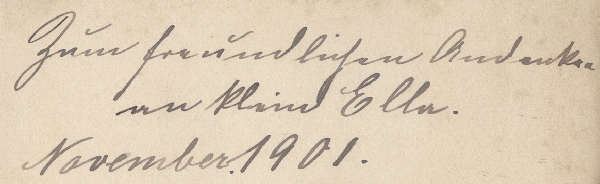 Zum freundlichen Andenken
an klein Ella.
November. 1901.